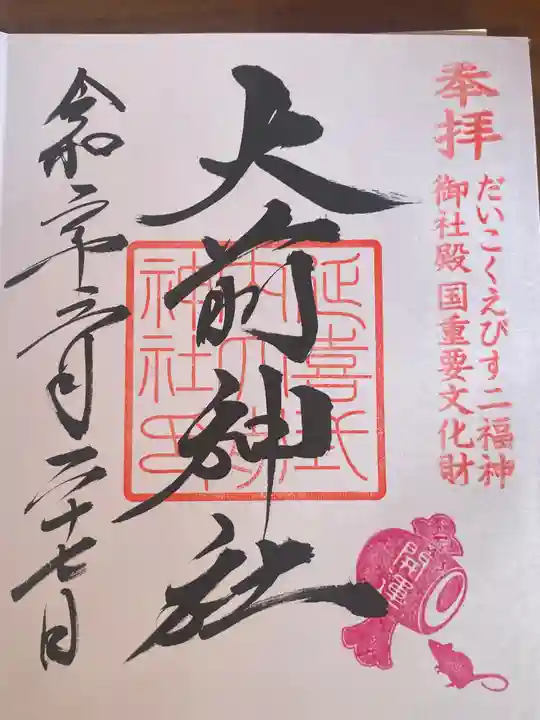 奉拝
だいこくえびす二福神
御社殿国重要文化財
大前神社
延喜式
内大前
神社印
開運
令和二年三月二十七日